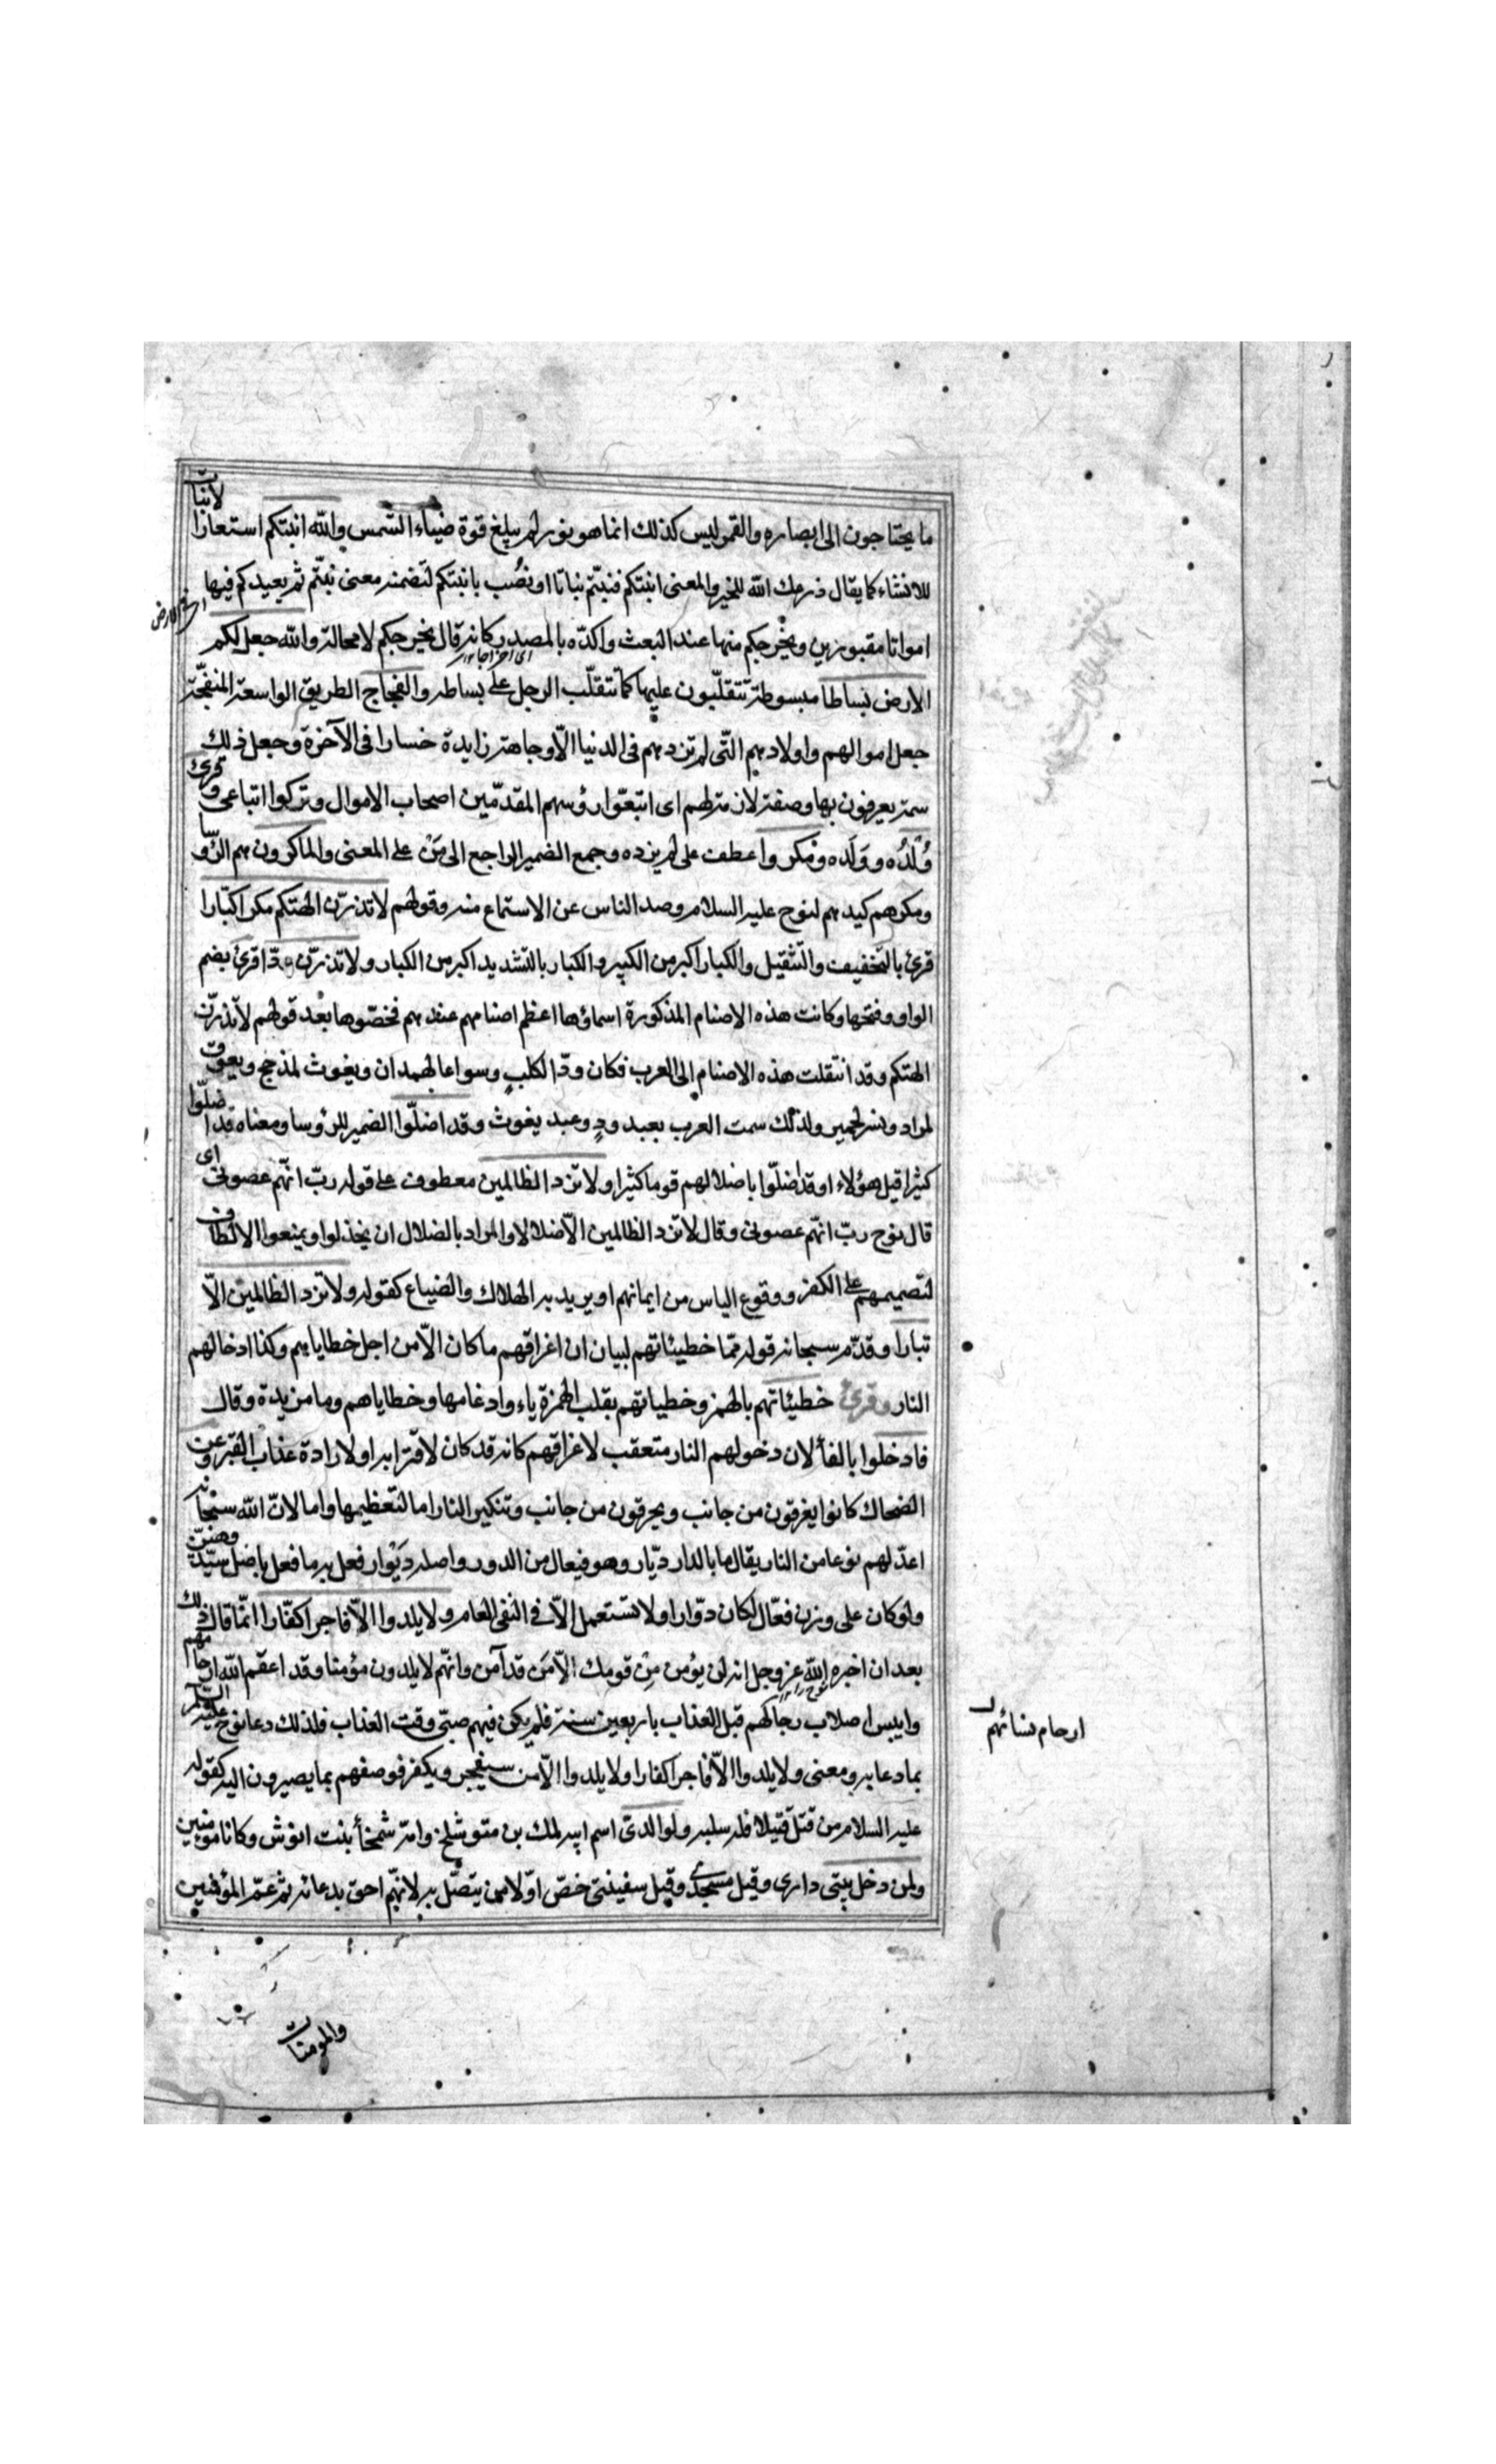 ما يحتاجون الى ابصاره والقمر ليس كذلك انما هو نور لم يبلغ قوة ضياء الشمس والله انبتكم استعارة الانبات
للانشاء كما يقال زرعك الله للخير والمعنى انبتكم فنبتّم نباتا او نُصُب بانبتكم لتضمنه معنى نبتّم ثم يعيدكم فيها
امواتا مقبورين ويخرجكم منها عند البعث واكدّه بالمصدر كانه قال يخرجكم لا محالة والله جعل لكم
اى اخراجا
الارض بساطا مبسوطة تتقلّبون عليها كما تتقلّب الرجل على بساطه والفجاج الطريق الواسعة المنفجّة
جعل اموالهم واولادهم التّى لم تزدهم فى الدنيا الّا وجاهة زايدة خسارا فى الآخرة وجعل ذلك
سمة يعرفون بها وصفة لازمة لهم اى اتبعّوا رؤسهم المقدّمين اصحاب الاموال وتركوا اتباعى وقرئ
وُلْدُه ووَلَده ومكروا عطف على لم يزده وجمع الضمير الراجع الى مَنْ على المعنى والماكرون هم الرّؤسا
ومكرهم كيدهم لنوح عليه السلام وصد الناس عن الاستماع منه وقولهم لا تذرنّ الهتكم مكرا كبّارا
قرئ بالتخفيف والتّثقيل والكبار اكبر من الكبير والكبّار بالتشديد اكبر من الكبار ولا تذرنّ ودّا قرئ بضم
الواو وفتحها وكانت هذه الاصنام المذكورة اسماؤها اعظم اصنامهم عندهم فخصّوها بعد قولهم لا تذرنّ
الهتكم وقد انتقلت هذه الاصنام الى العرب فكان ودّ الكلبٍ وسواعا لهمدان ويغوث لمذحج ويعوق
لمراد ونسر لحمير ولذلك سمت العرب بعبد ودٍ وعبد يغوث وقد اضلّوا الضمير للرؤسا ومعناه قد اضلّوا
كثيرا قيل هؤلاء او قد اضلّوا باضلالهم قوما كثيرا ولا تزد الظالمين معطوف على قوله ربّ انّهم عصونى اى
قال نوح ربّ انّهم عصونى وقال لا تزد الظالمين الّا ضلالا والمراد بالضلال ان يخذلوا ويمنعوا الالطاف
لتصميمهم على الكفر ووقوع الياس من ايمانهم او يريد به الهلاك والضياع كقوله ولا تزد الظالمين الّا
تبارا وقدّم سبحانه قوله ممّا خطيئاتهم لبيان ان اغراقهم ما كان الّا من اجل خطاياهم وكذا ادخالهم
النار وقرئ خطيئاتهم بالهمز وخطياتهم بقلب الهمزة ياء وادغامها وخطاياهم وما مزيدة وقال
فادخلوا بالفأ لان دخولهم النار متعقب لاغراقهم كانه قد كان لاقترابه او لارادة عذاب القبر وعن
الضحاك كانوا يغرقون من جانب ويحرقون من جانب وتنكير النار اما لتعظيمها واما لانّ الله سبحانه
اعدّ لهم نوعا من النار يقال ما بالدار ديّار وهو فيعال من الدور واصله دَيْوار فعل به ما فعل باصل سيّد وهيّن
ولو كان على وزن فعّال لكان دوّارا ولا تستعمل الّا فى النفى العام ولا يلدوا الّا فاجرا كفّارا انّما قال ذلك
بعد ان اخبره الله عز وجل انه لن يؤمن مِن قومك الّا مَن قد آمن وانّهم لا يلدون مؤمنا وقد اعقم الله ارحامهم
وايبس اصلاب رجالهم قبل العذاب باربعين سنة فلم يكن فيهم صبىّ وقت العذاب فلذلك دعا نوح عليه السلام
ارحام نسائهم
بما دعا به ومعنى ولا يلدوا الّا فاجرا كفارا ولا يلدوا الّا من سيفجر ويكفر فوصفهم بما يصيرون اليه كقوله
عليه السلام من قتل قتيلا فله سلبه ولوالدىّ اسم ابيه لمك بن متوشلخ وامّه شمخأ بنت انوش وكانا مؤمنين
ولمن دخل بيتى دارى وقيل مسجدى وقيل سفينتى خصّ اوّلا من يتصّل به لانهّم احق بدعائه ثم عمّ المؤمنين
والمومنات